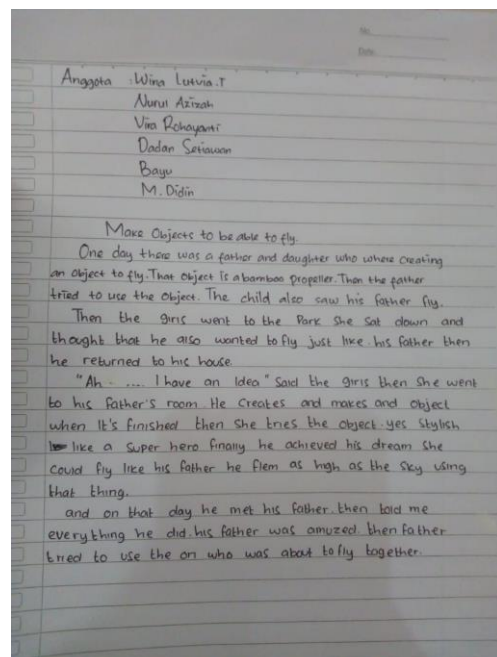 No.
Date
Anggota : Wina Lutvia.T
Nurul Azizah
Vira Rohayanti
Dadan Setiawan
Bayu
M. Didin
Make Objects to be able to fly.
One day there was a father and daughter who where creating
an object to fly. That object is a bamboo propeller. Then the father
tried to use the object. The child also saw his father fly.
Then the girls went to the Park she sat down and
thought that he also wanted to fly just like his father then
he returned to his house.
"Ah - .... I have an Idea" said the girls then she went
to his father's room. He creates and makes and object
when It's finished then she tries the object yes stylish
like a super hero finally he achieved his dream she
could fly like his father he flem as high as the sky using
that thing.
and on that day he met his father. then told me
everything he did. his father was amuzed. then father
tried to use the on who was about to fly together.